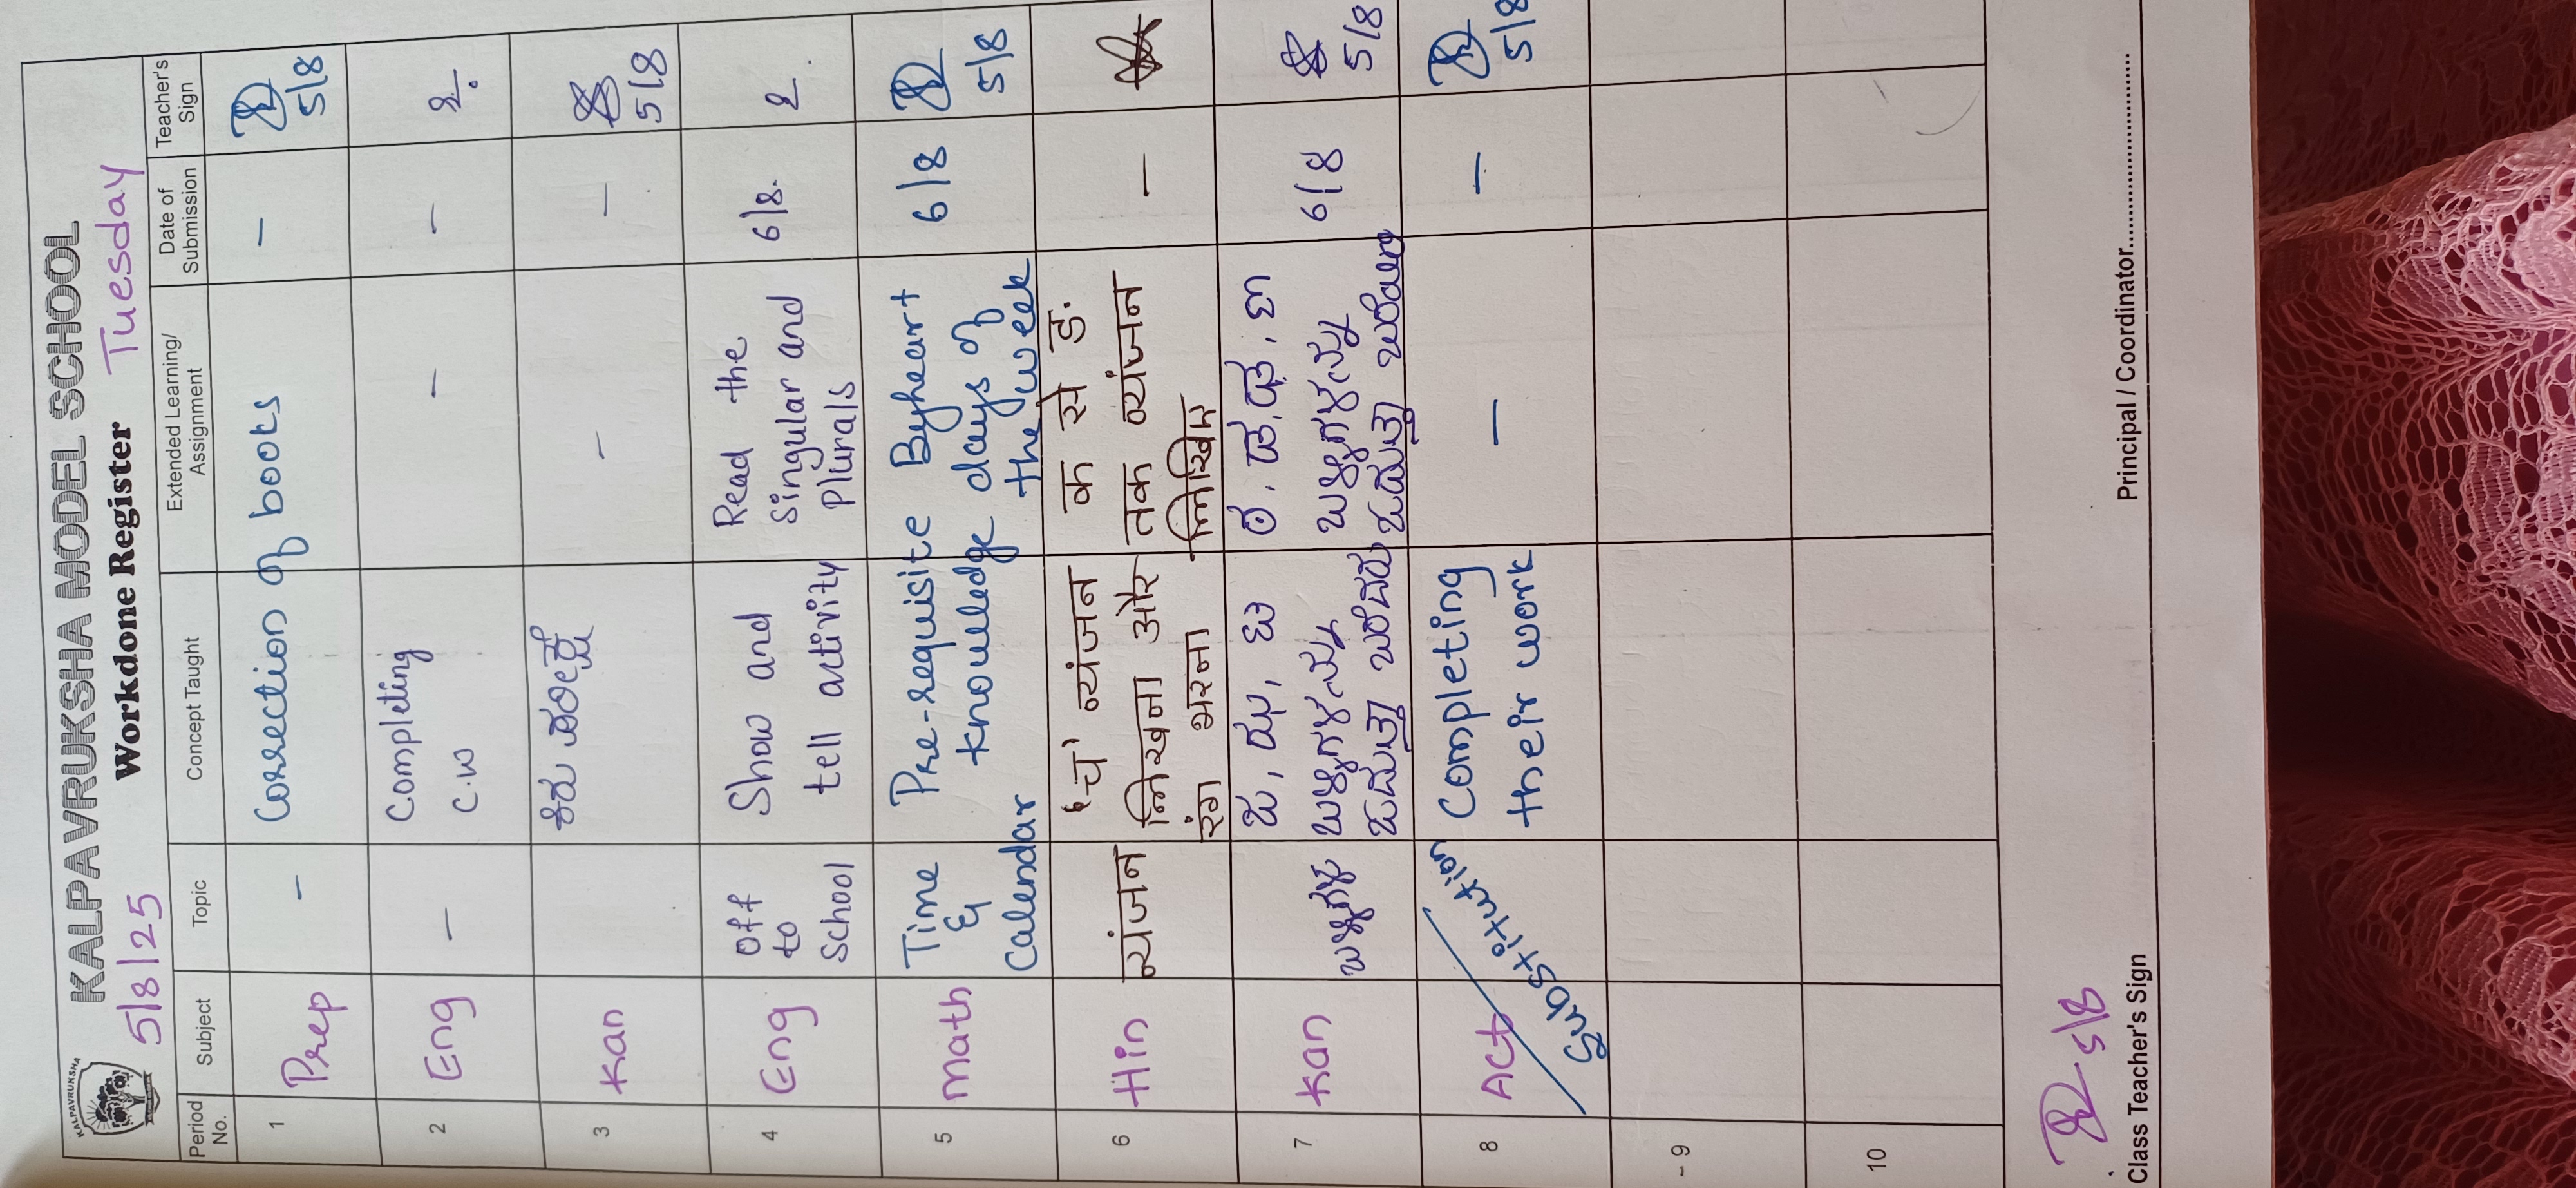 KALPAVRUKSHA
KALPAVRUKSHA MODEL SCHOOL
5/8/25 Workdone Register Tuesday
Period No. Subject Topic Concept Taught Extended Learning/ Assignment Date of Submission Teacher's Sign
1 Prep – Correction of books – 5/8
2 Eng – Completing C.W – –
3 Kan – – 5/8
4 Eng Off to School Show and tell activity Read the singular and plurals 6/8.
5 Math Time & Calendar Pre-requisite knowledge Byheart days of the week 6/8 5/8
6 Hin व्यंजन 'च' व्यंजन लिखना और रंग भरना क से ङ. तक व्यंजन लिखिए –
7 Kan 6/8 5/8
8 Act Substitution Completing their work – – 5/8
9
10
5/8
Class Teacher's Sign Principal / Coordinator